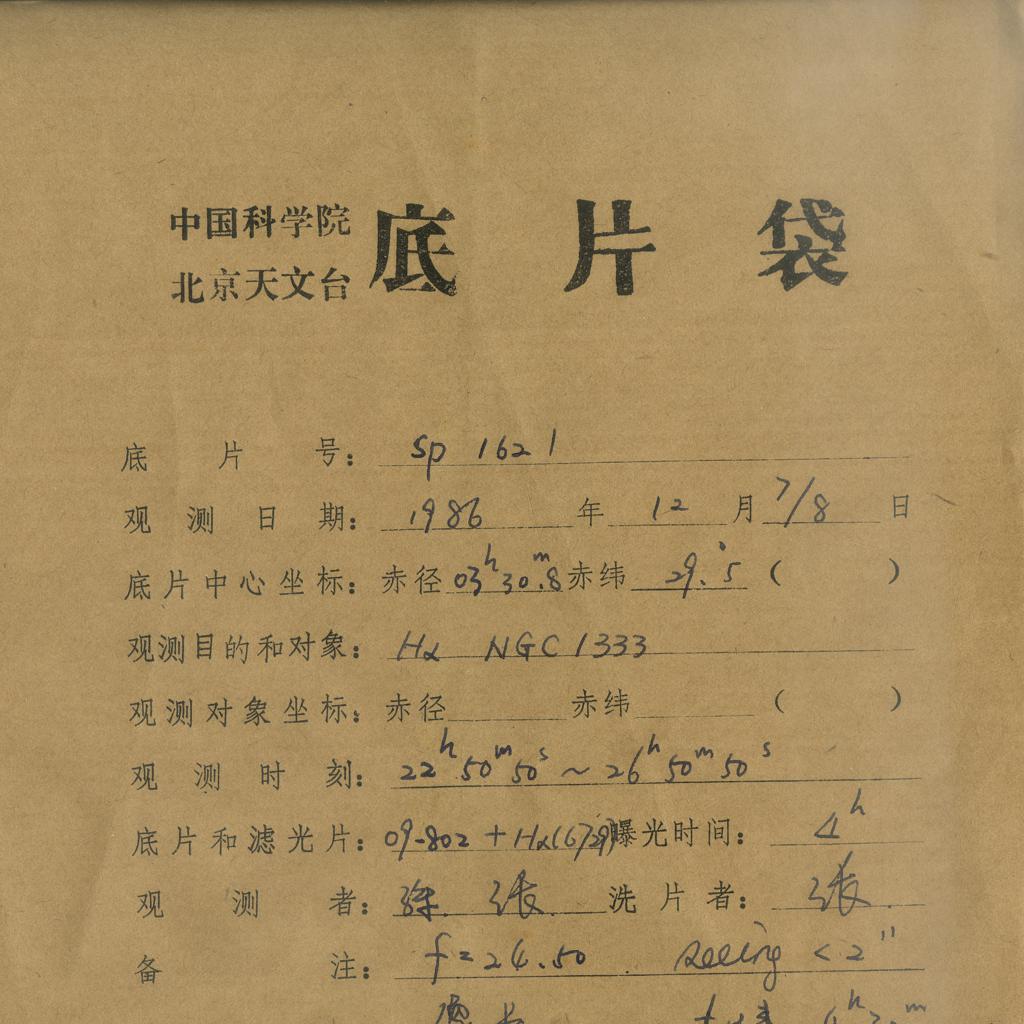 中国科学院
北京天文台
底片袋
底片号： sp 1621
观测日期： 1986 年 12 月 7/8 日
底片中心坐标：赤径 03h30m.8 赤纬 29°.5 ( )
观测目的和对象： Hα NGC 1333
观测对象坐标：赤径 赤纬 ( )
观测时刻： 22h50m50s ~ 26h50m50s
底片和滤光片： 09-802 + Hα(6729) 曝光时间： 4h
观测者： 徐 张 洗片者： 张
备注： f=24.50 seeing <2"